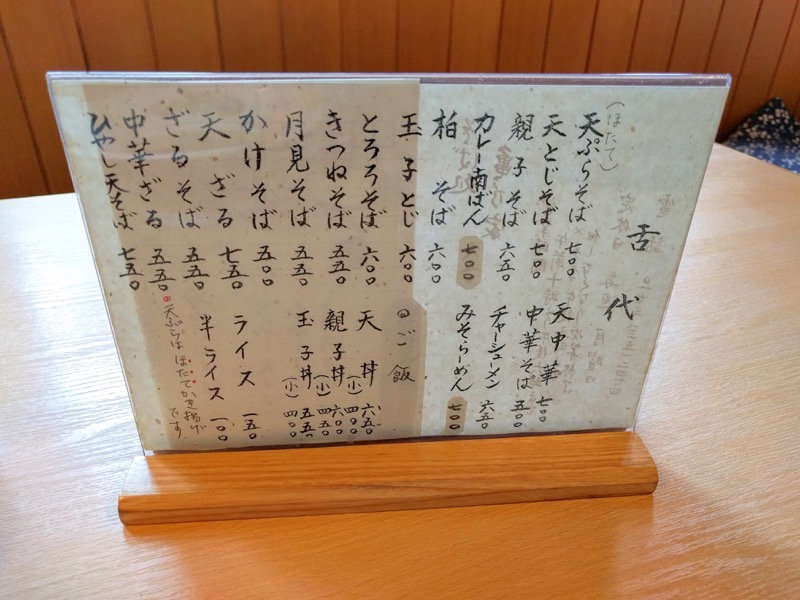 舌代
(ほたて)
天ぷらそば 七〇〇
天とじそば 七〇〇
親子そば 六五〇
カレー南ばん 七〇〇
柏そば 六〇〇
玉子とじ 六〇〇
とろろそば 六〇〇
きつねそば 五五〇
月見そば 五五〇
かけそば 五〇〇
天ざる 七五〇
ざるそば 五五〇
中華ざる 五五〇
ひやし天そば 七五〇
天中華 七〇〇
中華そば 五〇〇
チャーシューメン 六五〇
みそらーめん 七〇〇
ご飯
天丼 六五〇
(小) 四〇〇
親子丼 六〇〇
(小) 四五〇
玉子丼 五五〇
(小) 四〇〇
ライス 一五〇
半ライス 一〇〇
天ぷらは ほたてかき揚げです